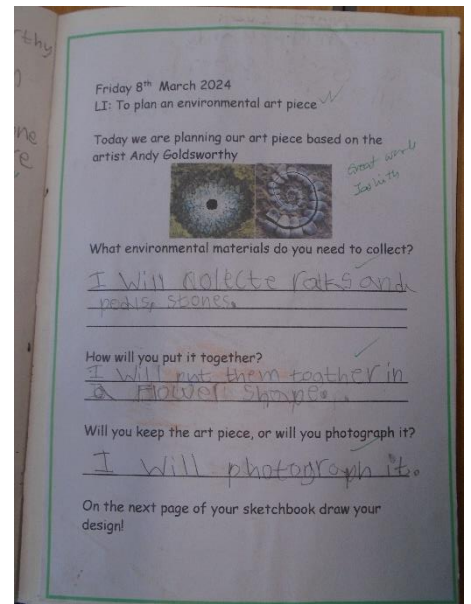 thy
ne
Friday 8th March 2024
LI: To plan an environmental art piece
Today we are planning our art piece based on the
artist Andy Goldsworthy
Great work
What environmental materials do you need to collect?
I Will colecte roks and
stones.
How will you put it together?
I Will put them togther in
a flower shape.
Will you keep the art piece, or will you photograph it?
I Will photograph it.
On the next page of your sketchbook draw your
design!